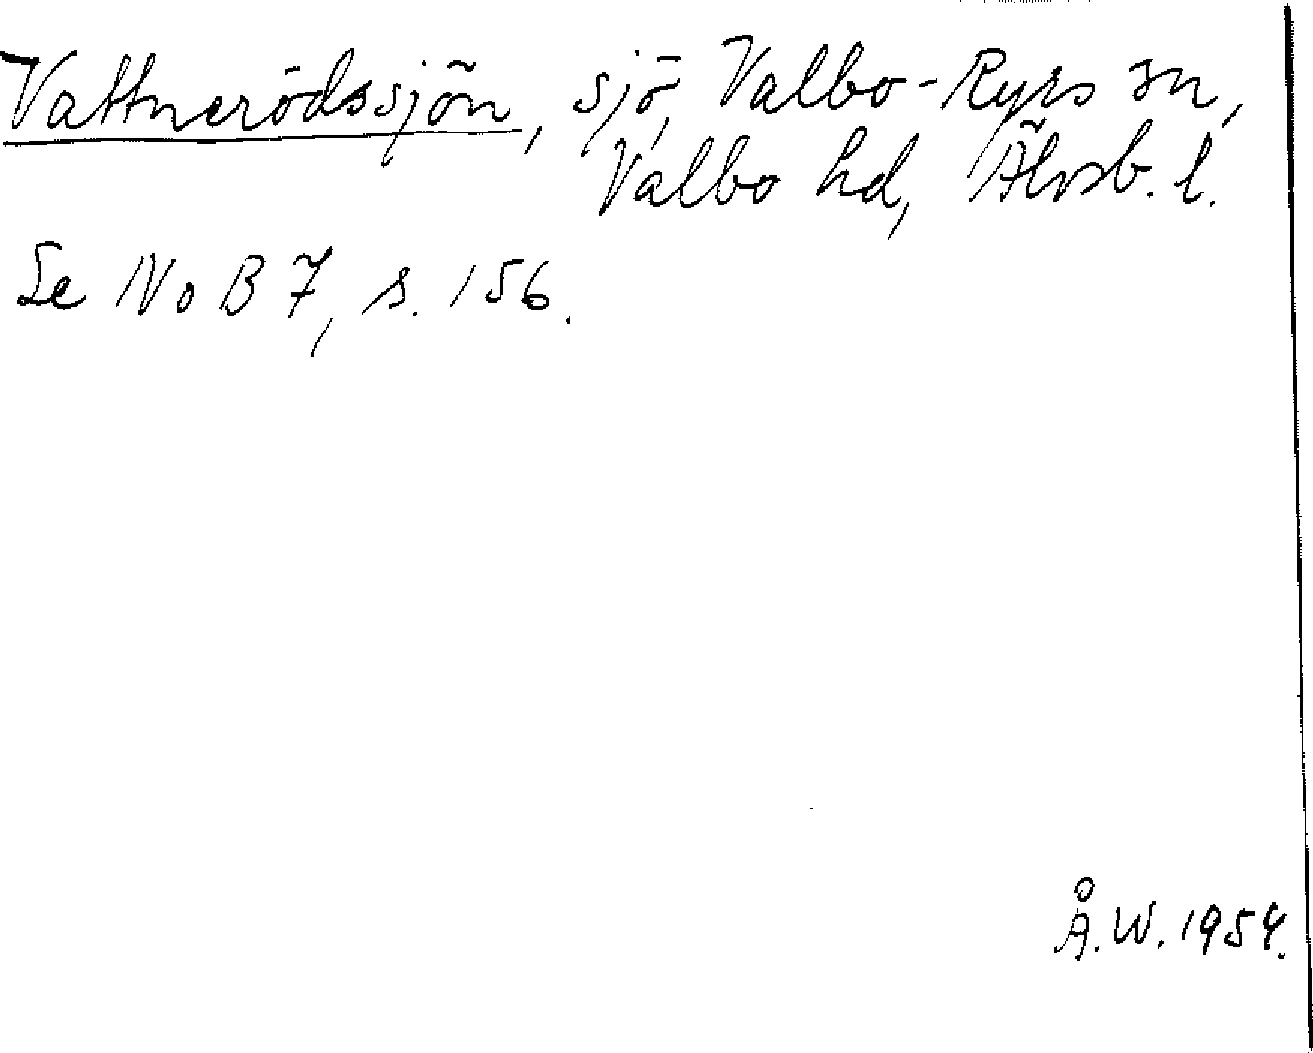 Vattnerödssjön, sjö, Valbo-Ryrs sn,
Valbo hd, Älvsb. l.
Se NoB 7, s. 156.
Å.W. 1954.